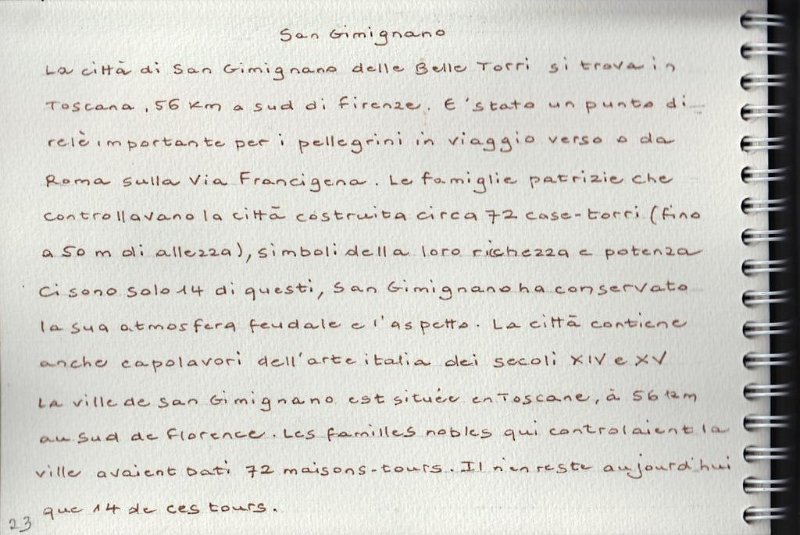 San Gimignano
La città di San Gimignano delle Belle Torri si trova in
Toscana, 56 km a sud di Firenze. E'stato un punto di
relè importante per i pellegrini in viaggio verso o da
Roma sulla Via Francigena. Le famiglie patrizie che
controllavano la città costruita circa 72 case-torri (fino
a 50 m di allezza), simboli della loro richezza e potenza
Ci sono solo 14 di questi, San Gimignano ha conservato
la sua atmosfera feudale e l'aspetto. La città contiene
anche capolavori dell'arte italia dei secoli XIV e XV
La ville de San Gimignano est située en Toscane, à 56 km
au sud de Florence. Les familles nobles qui controlaient la
ville avaient bati 72 maisons-tours. Il n'en reste aujourd'hui
que 14 de ces tours.
23